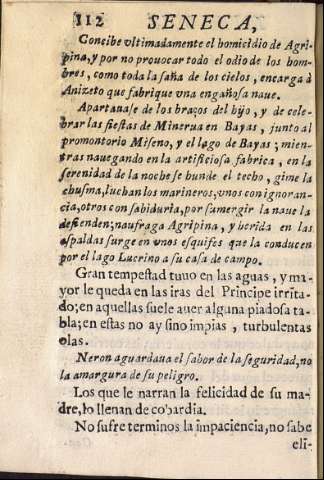 112 SENECA,
Concibe vltimadamente el homicidio de Agri-
pina, y por no prouocar todo el odio de los hom-
bres, como toda la saña de los cielos, encarga à
Anizeto que fabrique vna engañosa naue.
Apartauase de los braços del hijo, y de cele-
brar las fiestas de Minerua en Bayas, junto al
promontorio Miseno, y el lago de Bayas; mien-
tras nauegando en la artificiosa fabrica, en la
serenidad de la noche se hunde el techo, gime la
chusma, luchan los marineros, vnos con ignoran-
cia, otros con sabiduria, por sumergir la naue la
defienden; naufraga Agripina, y herida en las
espaldas surge en vnos esquifes que la conducen
por el lago Lucrino a su casa de campo.
Gran tempestad tuuo en las aguas, y ma-
yor le queda en las iras del Principe irrita-
do; en aquellas suele auer alguna piadosa ta-
bla; en estas no ay sino impias, turbulentas
olas.
Neron aguardaua el sabor de la seguridad, no
la amargura de su peligro.
Los que le narran la felicidad de su ma-
dre, lo llenan de cobardia.
No sufre terminos la impaciencia, no sabe
eli-